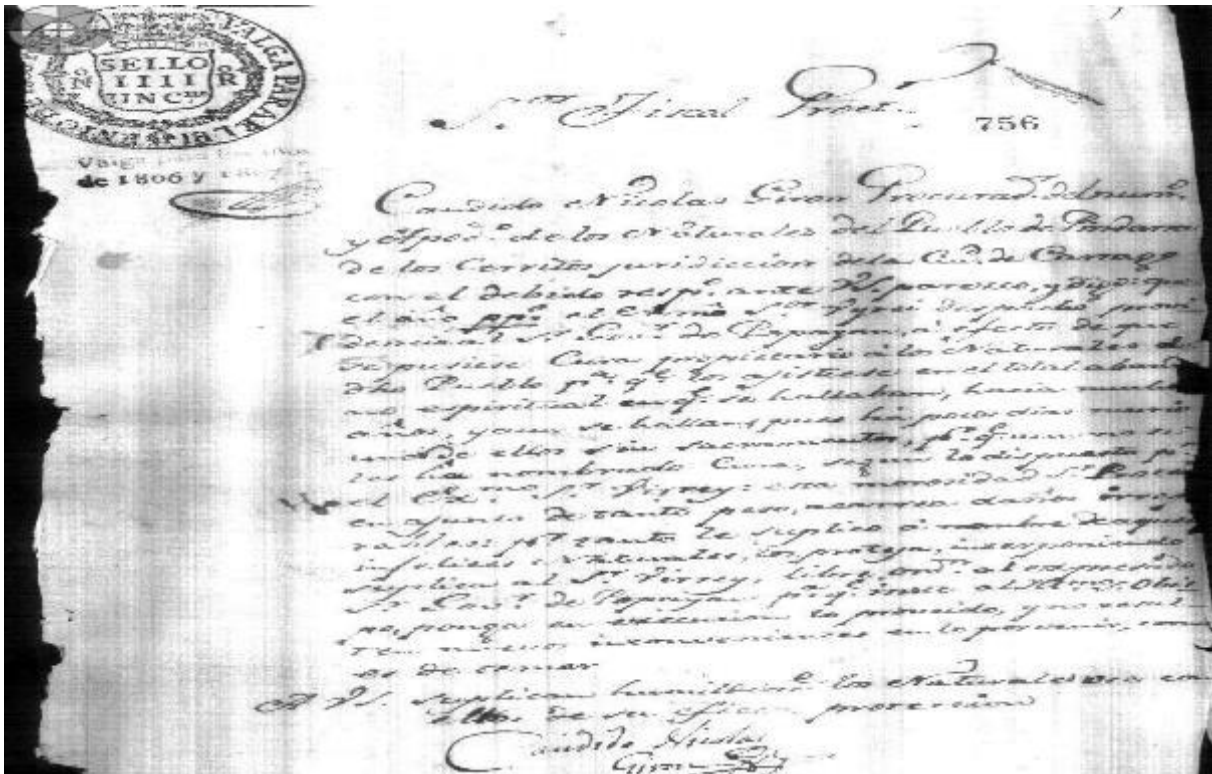 VALGA PARA EL
SELLO
IIII
UNC
N R
Valga para los años
de 1806 y 1807
S.or Fiscal Protr.
756
Candido Nicolas Giron Procurad.r del num.o
y Apod.o de los Naturales del Pueblo de Pindana
de los Cerritos jurisdiccion de la Ciu.d de Cartago
con el debido resp.to ante VS paresco, y digo: que
el año pp.o el Exmo S.or Virrey despachó provi
dencia al S.or Gov.r de Popayan, a efecto de que
se pusiese Cura propietario a los Naturales de
dho Pueblo p.a q.e los asistiese en el total aband
no espiritual en q.e se hallaban, hacia muchos
años, y aun se hallan, pues há pocos dias murió
uno de ellos sin sacramentos, p.r q.e aun no se
les ha nombrado Cura, segun lo dispuesto p.r
el Exmo S.or Virrey: esta morosidad S.or
en asunto de tanto peso, acarrea daños irrepa
rables: por tanto le suplico a nombre de aque
infelices Naturales, los proteja, interponiendo
suplica al S.or Virrey, libre orn. al expresado
S.or Gov.r de Popayan p.a q.e inste al Obis
po, ponga en execucion lo proveido, y no result
ten nuevos inconvenientes en lo porvenir, como
es de temer
A VS. suplican humildem.te los Naturales
de su oficio proteccion
Candido Nicolas
Giron